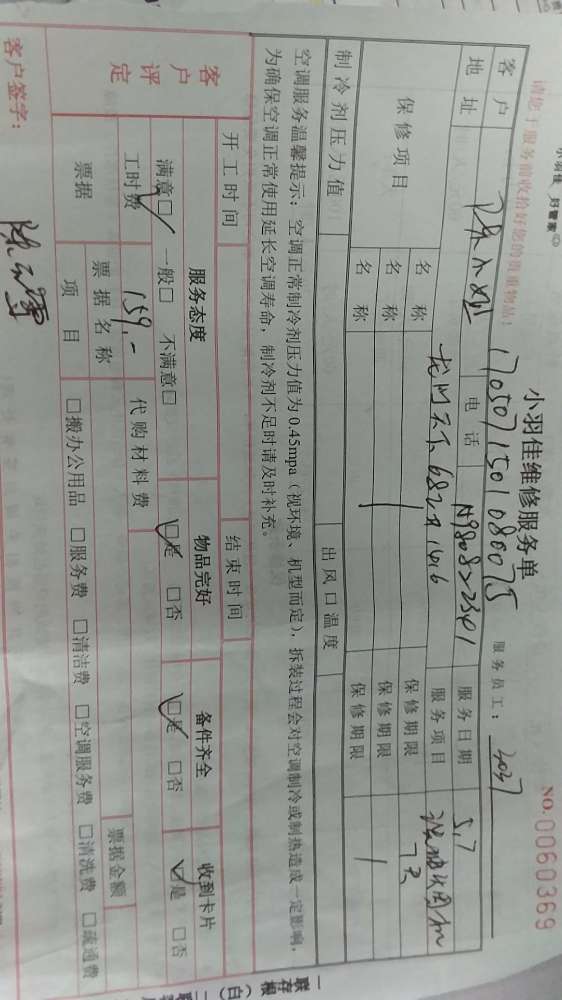 小羽佳 好管家
请您于服务前收拾好您的贵重物品！
小羽佳维修服务单
NO.0060369
170507150108007S
服务员工：
客户
电话
服务日期 5.7
地址
682#1616
服务项目
保修项目
名称
保修期限 7天
名称
保修期限
名称
保修期限
制冷剂压力值
出风口温度
空调服务温馨提示：空调正常制冷剂压力值为0.45mpa（视环境、机型而定），拆装过程会对空调制冷或制热造成一定影响，
为确保空调正常使用延长空调寿命，制冷剂不足时请及时补充。
开工时间
结束时间
客户评定
服务态度
物品完好
备件齐全
收到卡片
满意□ 一般□ 不满意□
□是 □否
□是 □否
□是 □否
工时费 159,-
代购材料费
票据
票据名称
票据金额
项目
□搬办公用品 □服务费 □清洁费 □空调服务费 □清洗费 □疏通费
客户签字：
一联存根（白）二联